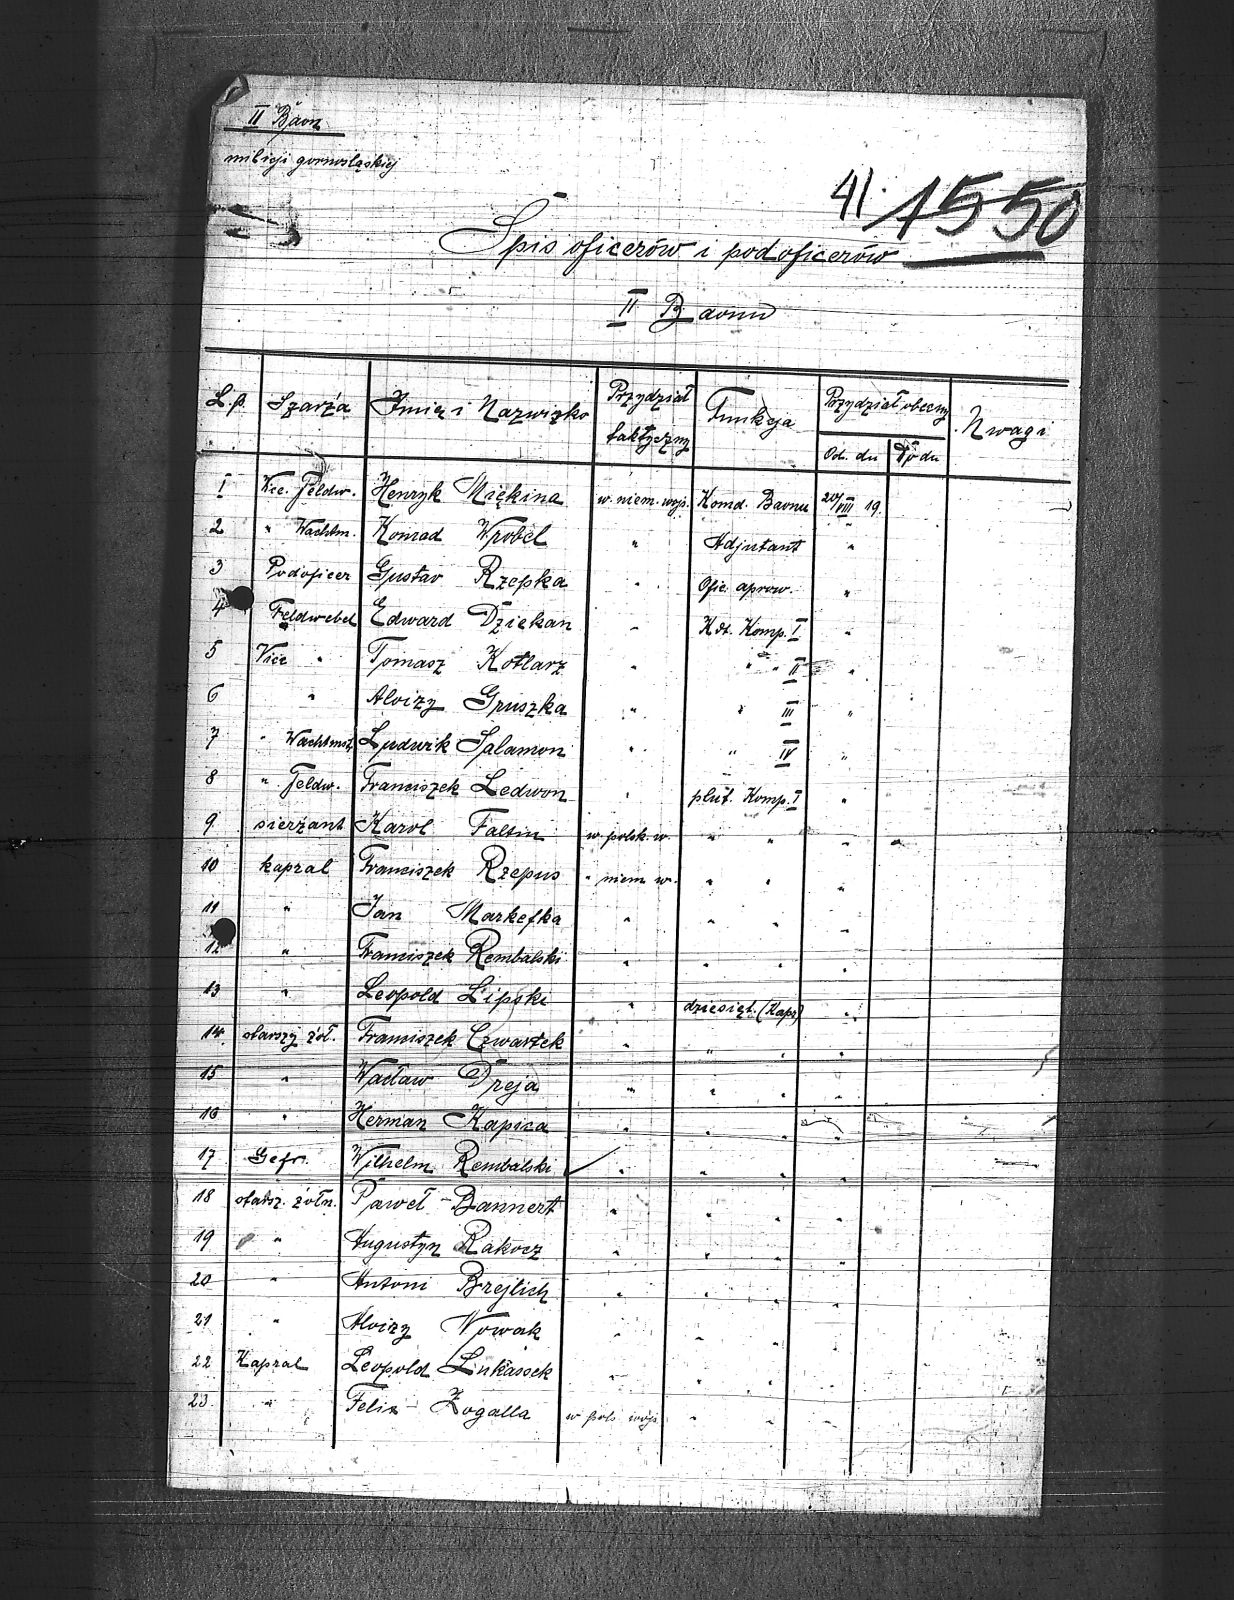 II Baon
milicji gornośląskiej
41. 1550
Spis oficerów i podoficerów
II Baonu
L.p. Szarża Imię i Nazwisko Przydział faktyczny Funkcja Przydział obecny Uwagi
Od. dn Do dn
1 Vice. Feldw. Henryk Miękina w. niem. wojs. Komd. Baonu 20/VIII 19.
2 " Wachtm. Konrad Wrobel " Adjutant "
3 Podoficer Gustav Rzepka " Ofic. aprow. "
4 Feldwebel Edward Dziekan " Kdt. Komp. I "
5 Vice " Tomasz Kotlarz " " " II "
6 " Aloizy Gruszka " " III "
7 " Wachtmst. Ludwik Salamon " " IV "
8 " Feldw. Franciszek Ledwon " plut. Komp. I "
9 sierżant Karol Faltin w polsk. w. " " "
10 kapral Franciszek Rzepus " niem w. " " "
11 " Jan Markefka " " " "
12 " Franciszek Rembalski " " " "
13 " Leopold Lipski " dziesięt. (Kapr) "
14 starszy żoł. Franciszek Czwartek " " " "
15 " Wacław Dreja " " " "
16 " Herman Kapica " " " "
17 Gefr. Wilhelm Rembalski " " " "
18 starsz. żołn. Paweł Bannert " " " "
19 " Augustyn Rakocz " " " "
20 " Antoni Brejlich " " " "
21 " Aloizy Nowak " " " "
22 Kapral Leopold Lukassek " " "
23 " Felix Zogalla w pols wojs " "